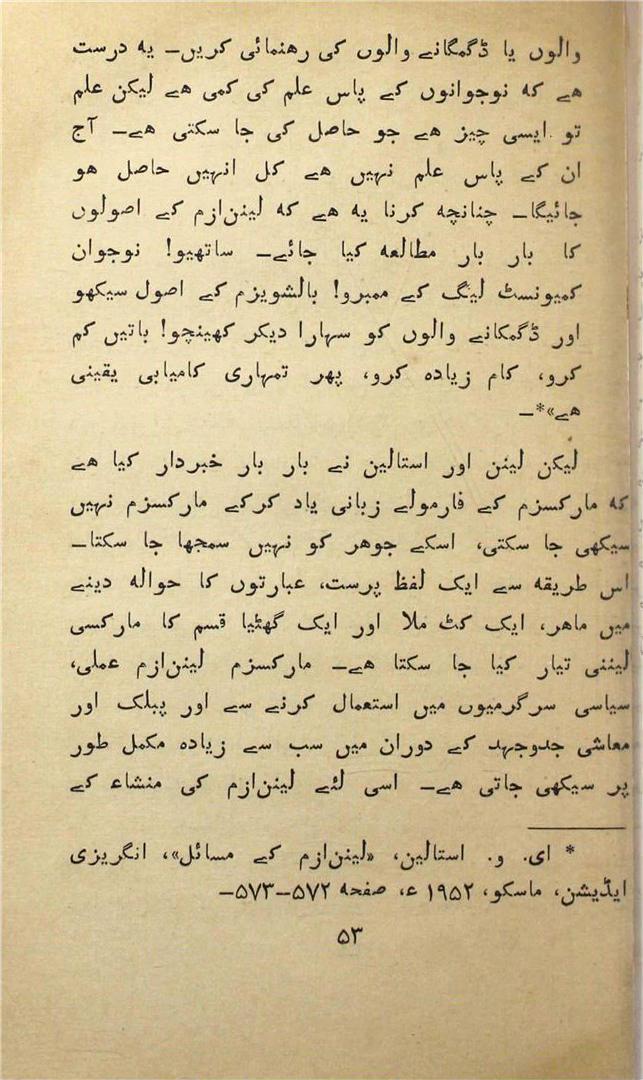 والوں یا ڈگمگانے والوں کی رھنمائی کریں۔ یہ درست
ھے کہ نوجوانوں کے پاس علم کی کمی ھے لیکن علم
تو ایسی چیز ھے جو حاصل کی جا سکتی ھے۔ آج
ان کے پاس علم نہیں ھے کل انہیں حاصل ھو
جائیگا۔ چنانچہ کرنا یہ ھے کہ لینن‌ازم کے اصولوں
کا بار بار مطالعہ کیا جائے۔ ساتھیو! نوجوان
کمیونسٹ لیگ کے ممبرو! بالشویزم کے اصول سیکھو
اور ڈگمگانے والوں کو سہارا دیکر کھینچو! باتیں کم
کرو، کام زیادہ کرو، پھر تمہاری کامیابی یقینی
ھے»*۔
لیکن لینن اور استالین نے بار بار خبردار کیا ھے
کہ مارکسزم کے فارمولے زبانی یاد کرکے مارکسزم نہیں
سیکھی جا سکتی، اسکے جوھر کو نہیں سمجھا جا سکتا۔
اس طریقہ سے ایک لفظ پرست، عبارتوں کا حوالہ دینے
میں ماھر، ایک کٹ ملا اور ایک گھٹیا قسم کا مارکسی
لیننی تیار کیا جا سکتا ھے۔ مارکسزم لینن‌ازم عملی،
سیاسی سرگرمیوں میں استعمال کرنے سے اور پبلک اور
معاشی جدوجہد کے دوران میں سب سے زیادہ مکمل طور
پر سیکھی جاتی ھے۔ اسی لئے لینن‌ازم کی منشاء کے
* ای. و. استالین، «لینن‌ازم کے مسائل»، انگریزی
ایڈیشن، ماسکو، ۱۹۵۲ ء، صفحہ ۵۷۲–۵۷۳۔
۵۳